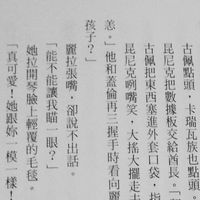 古佩點頭,卡瑞瓦族也點頭。
昆尼克把數據板交給酋長。「
古佩把東西塞進外套口袋,指
昆尼克咧嘴笑,大搖大擺走
恙。」他和蓋倫再三握手時看向麗
孩子?」
麗拉張嘴,卻說不出話。
「能不能讓我瞄一眼?」
她拉開琴臉上輕覆的毛毯。
「真可愛!她跟妳一模一樣!